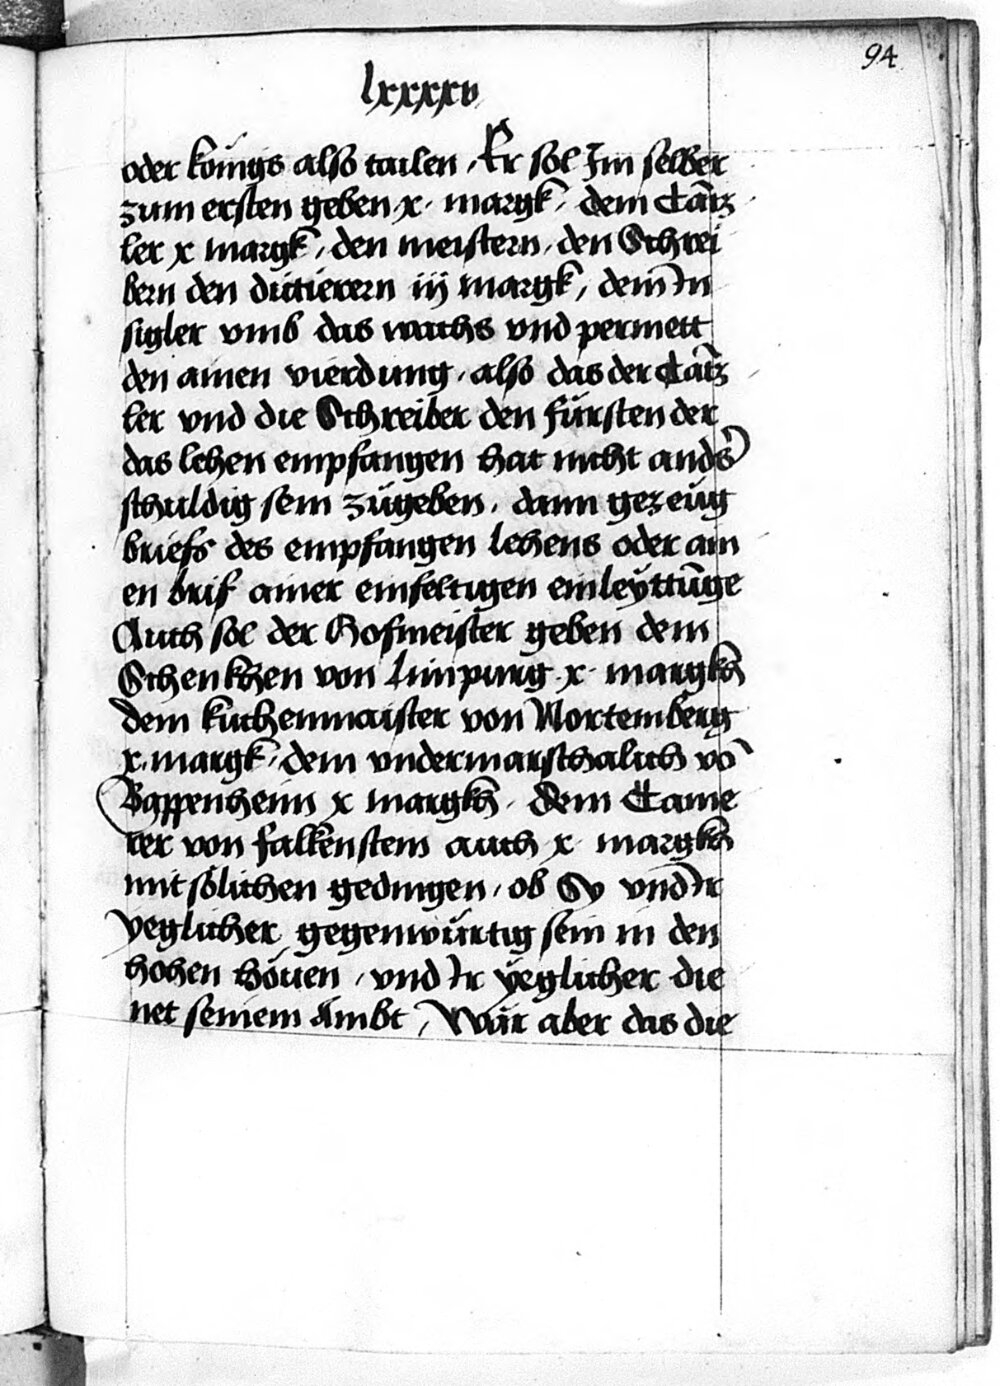 94
lxxxxv
oder königs also tailen, Er sol Im selber
zum ersten geben x margk, dem Cantz
ler x margk, den meistern, den Schrei
bern den dictierern iij margk, dem In
sigler vmb das wachs vnd permett
den ainen vierdung, also das der Cantz
ler vnd die Schreiber den fürsten der
das lehen empfangen hat nicht anders
schuldig sein zugeben, dann gezeug
briefs des empfangen lehens oder ain
en brif ainer einfeltigen einleÿttunge
Auch sol der Hofmeister geben dem
Schenkhen von limpurg x margkh
dem kuchenmaister von Nortemberg
x margk, dem vndermarschalich vō
Bappenheim x margkh, dem Came
rer von falkenstein auch x margkh
mit sölichen gedingen, ob Sy vnd Ir
yeglicher gegenwürtig sein in den
hohen höuen, vnd Ir ÿeglicher die
net seinem Ambt, Wär aber das die